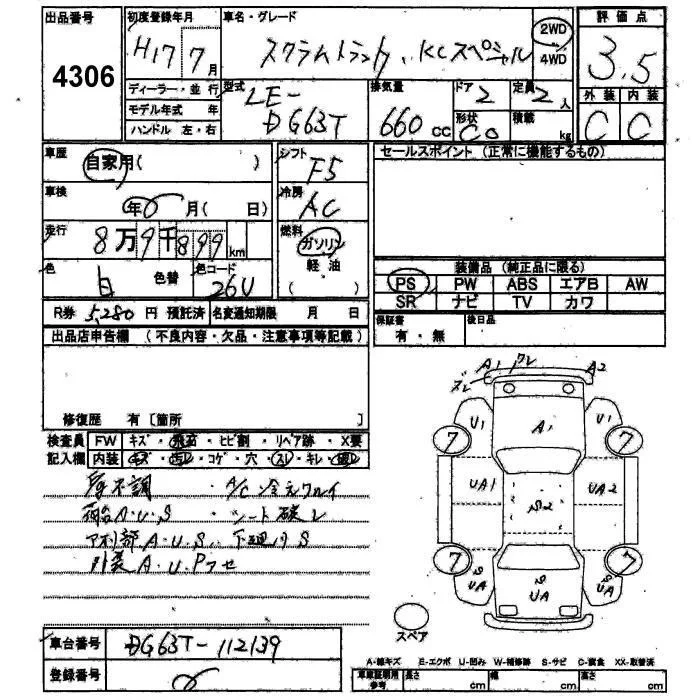 出品番号
4306
初度登録年月
H17 7月
車名・グレード
スクラムトラック、KCスペシャル
2WD
4WD
評価点
3.5
ディーラー・並行
モデル年式 年
ハンドル 左・右
型式
LE-
DG63T
排気量
660 cc
ドア
2
形状
Co
定員
2人
積載
kg
外装 内装
C C
車歴
自家用( )
シフト
F5
セールスポイント (正常に機能するもの)
車検
年0月( 日)
冷房
AC
走行
8万9千899km
燃料
ガソリン
軽・油
( )
色
白
色替
色コード
26U
装備品 (純正品に限る)
PS PW ABS エアB AW
SR ナビ TV カワ
R券 5,280円 預託済 名変通知期限 月 日
保証書
有・無
後日品
出品店申告欄 (不良内容・欠品・注意事項等記載)
修復歴 有 [箇所 ]
検査員
記入欄
FW キズ・飛石・ヒビ割・リペア跡・X要
内装 キズ・汚レ・コゲ・穴・スレ・キレ・破レ
・A/C冷えワルイ
荷台A.U.S
・シート破レ
A.U.S
下廻りS
外装A.U.P
A1
ワレ
A2
ズレ
U1
A1
U1
7
7
UA1
S2
UA2
7
7
S
UA
S
UA
S
UA
スペア
車台番号
DG63T-112139
登録番号
A-線キズ E-エクボ U-凹み W-補修跡 S-サビ C-腐食 XX-取替済
車庫証明用
参考
長さ cm
幅 cm
高さ cm